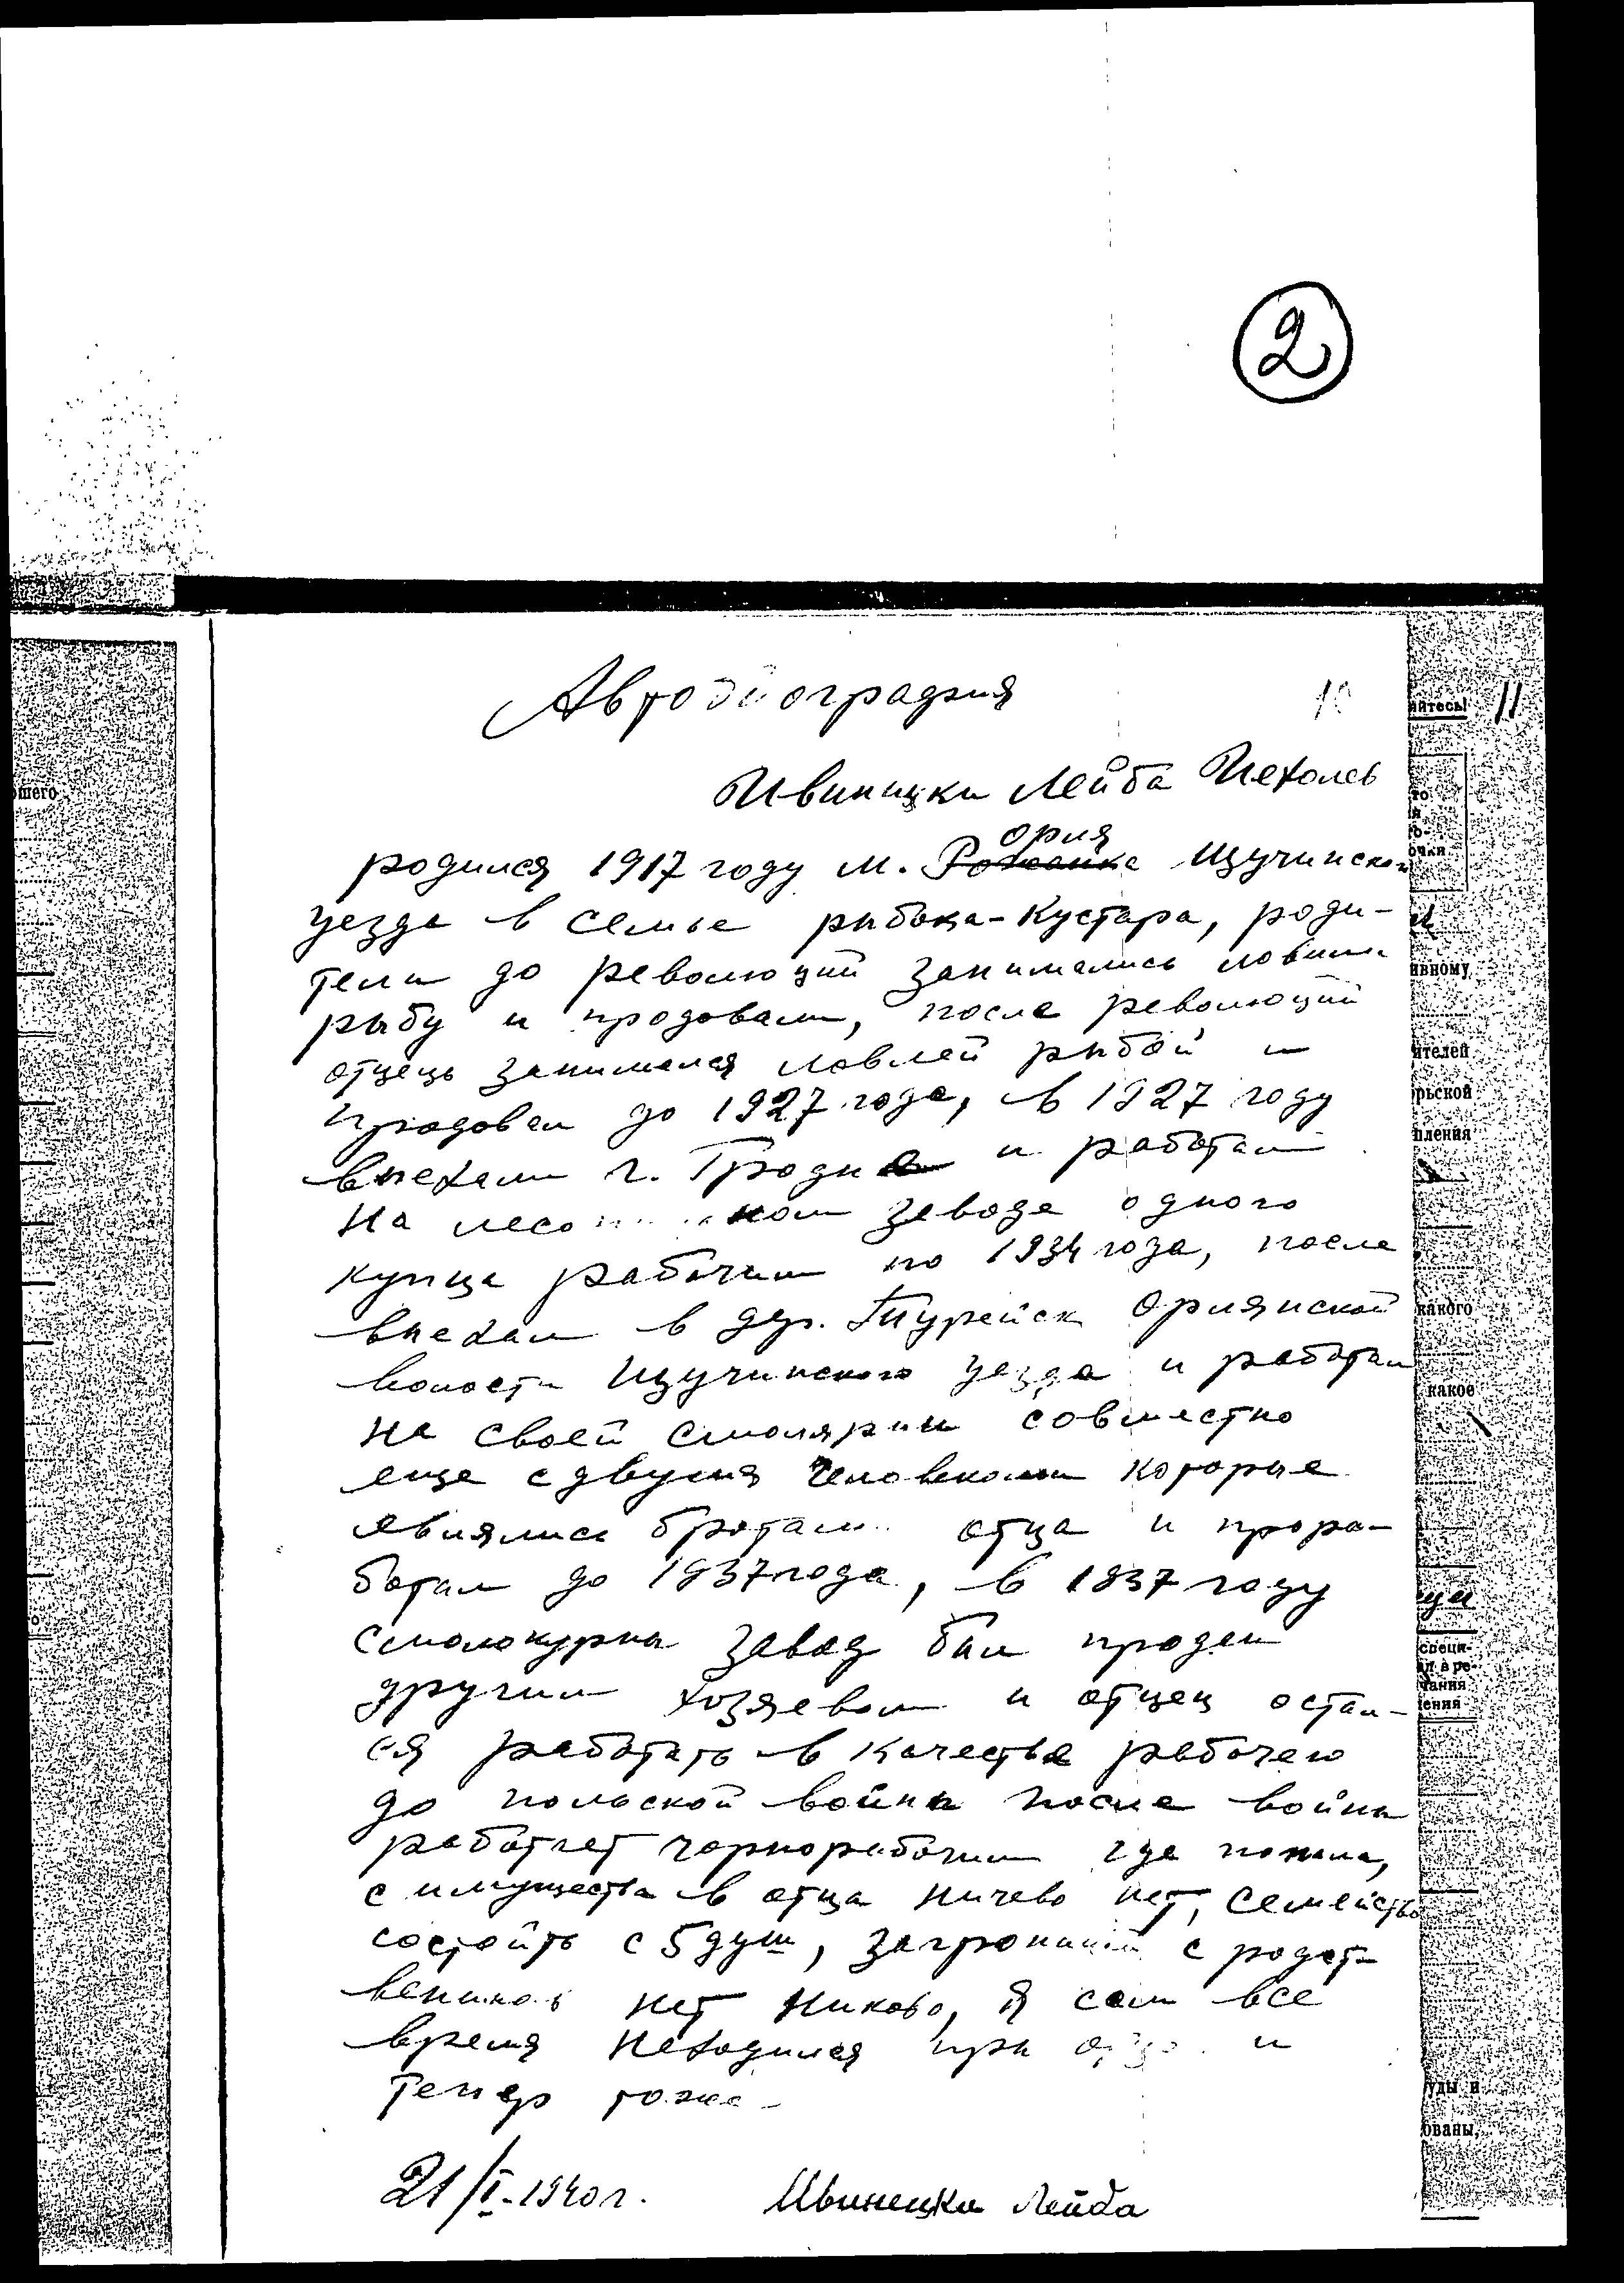 2
Автобиография
10
11
Ивиницки Лейба Иехолев
ория
родился 1917 году м. Рожанка Щучинской
уезда в семье рыбака-кустара, роди-
тели до революций занимались ловили
рыбу и продовали, после революций
отцець занимался ловлей рыбой и
продовал до 1927 года, в 1927 году
выехали г. Гродно и работал
на заводе одного
купца рабочим по 1934 года, после
выехал в дер. Турейск Орлянской
волости Щучинского уезда и работал
на своей смолярни совместно
еще с двумя человеками которые
явиялись братами отца и прора-
ботал до 1937 года, в 1937 году
смолокурны завод был продан
другим хозяевам и отцец остал-
ся работать в качестве рабочего
до польской войны после войны
работает чорнорабочим где попало,
с имущества в отца ничево нет, семейство
состойть с 5 душ, заграницей с родст-
венников нет никово, я сам все
время находился при отце и
тепер тоже
21/I-1940 г. Ивинецки Лейба
ошего
йтесь!
ивному
ителей
рьской
пления
какого
какое
специ-
чания
ения
уды и
ованы,